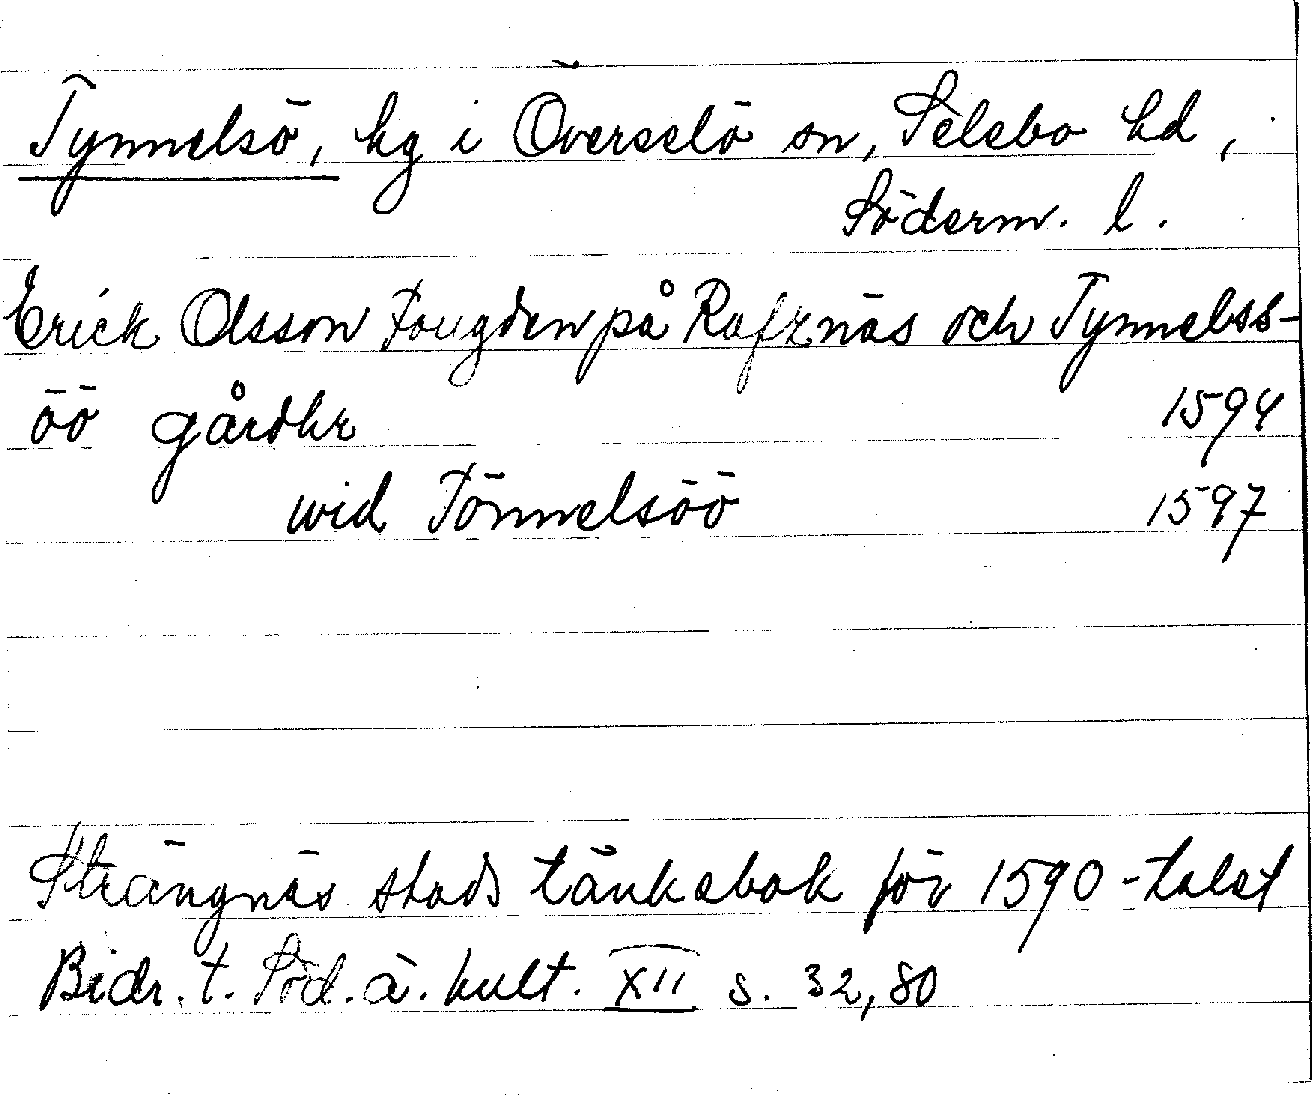 Tynnelsö, hg i Överselö sn, Selebo hd,
Söderm. l.
Erick Olsson Fougden på Rafznäs och Tynnelss-
öö gårdhr 1594
wid Tönnelsöö 1597
Strängnäs stads tänkebok för 1590-talet
Bidr. t. Söd. ä. kult. XII s. 32, 80